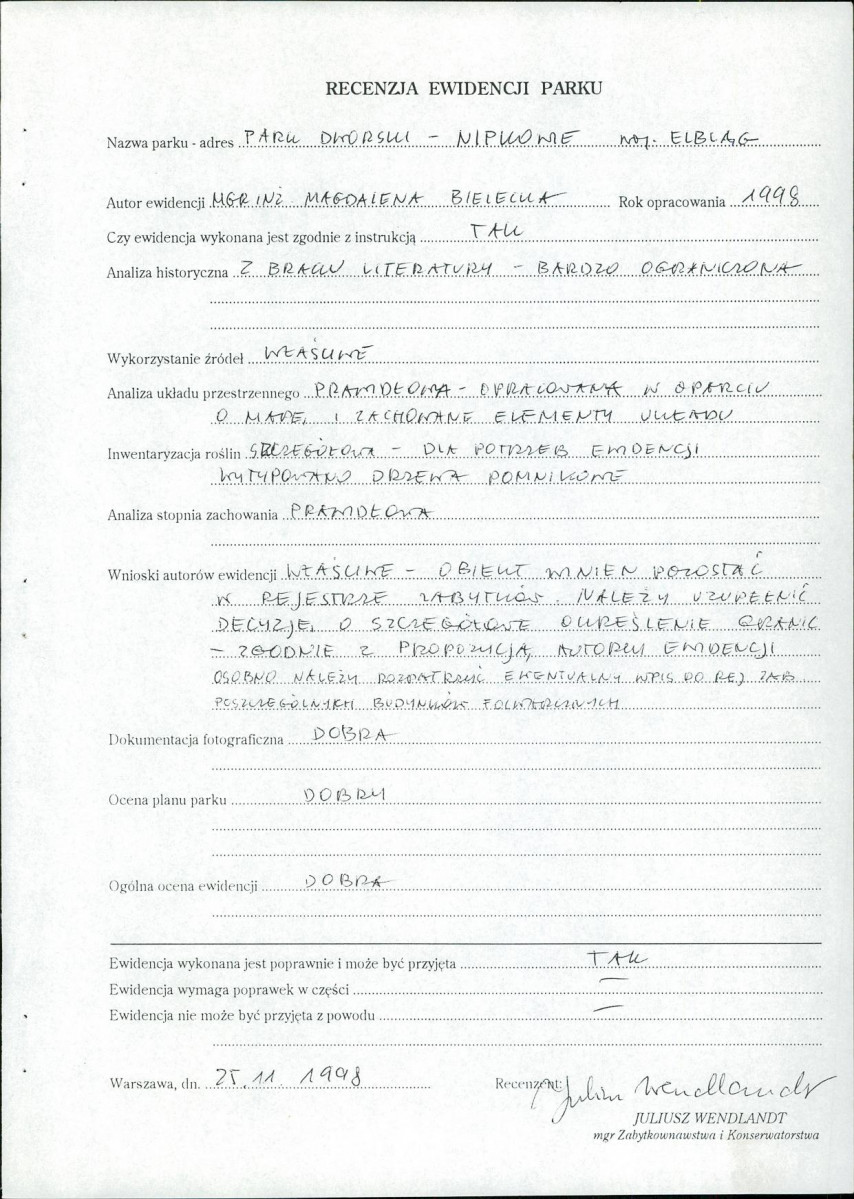 RECENZJA EWIDENCJI PARKU
Nazwa parku - adres PARK DWORSKI – NIPKOWIE woj. ELBLĄG
Autor ewidencji MGR INŻ MAGDALENA BIELECKA Rok opracowania 1998
Czy ewidencja wykonana jest zgodnie z instrukcją TAK
Analiza historyczna Z BRAKU LITERATURY – BARDZO OGRANICZONA
Wykorzystanie źródeł WŁAŚCIWE
Analiza układu przestrzennego PRAWIDŁOWA – OPRACOWANA W OPARCIU
O MAPĘ, I ZACHOWANE ELEMENTY UKŁADU
Inwentaryzacja roślin SZCZEGÓŁOWA – DLA POTRZEB EWIDENCJI
WYTYPOWANO DRZEWA POMNIKOWE
Analiza stopnia zachowania PRAWIDŁOWA
Wnioski autorów ewidencji WŁAŚCIWE – OBIEKT WINIEN POZOSTAĆ
W REJESTRZE ZABYTKÓW. NALEŻY UZUPEŁNIĆ
DECYZJĘ, O SZCZEGÓŁOWE OKREŚLENIE GRANIC
– ZGODNIE Z PROPOZYCJĄ AUTORKI EWIDENCJI
OSOBNO NALEŻY ROZPATRZYĆ EWENTUALNY WPIS DO REJ ZAB
POSZCZEGÓLNYCH BUDYNKÓW FOLWARCZNYCH
Dokumentacja fotograficzna DOBRA
Ocena planu parku DOBRY
Ogólna ocena ewidencji DOBRA
Ewidencja wykonana jest poprawnie i może być przyjęta TAK
Ewidencja wymaga poprawek w części —
Ewidencja nie może być przyjęta z powodu —
Warszawa, dn. 25.11.1998 Recenzent: Juliusz Wendlandt
JULIUSZ WENDLANDT
mgr Zabytkownawstwa i Konserwatorstwa